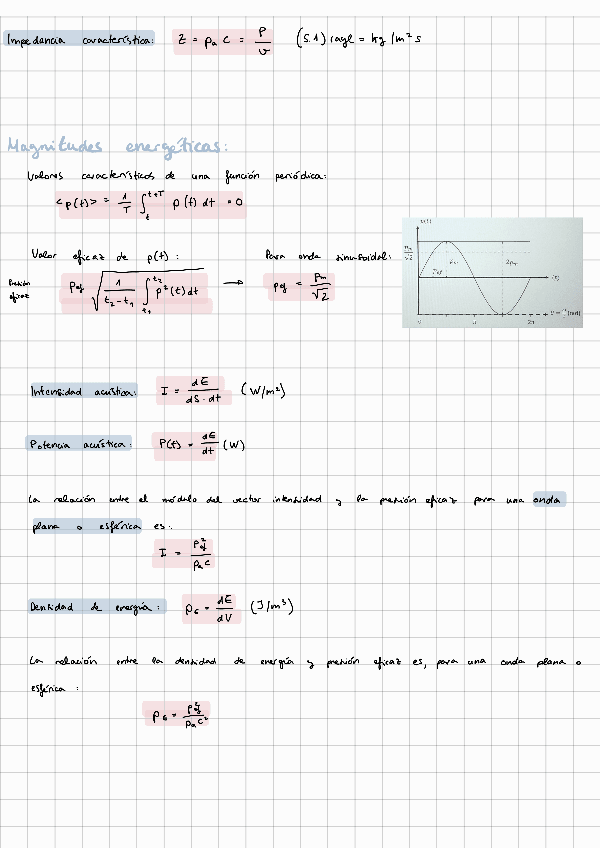 Impedancia característica: Z = ρₐ c = p/v (S.I) rayl = kg/m² s
Magnitudes energéticas:
Valores característicos de una función periódica:
<p(t)> = 1/T ∫ₜ^(t+T) p(t) dt = 0
Valor eficaz de p(t): Para onda sinusoidal:
Presión eficaz p_ef √(1/(t₂-t₁) ∫_(t₁)^(t₂) p²(t) dt) → p_ef = p_m/√2
Intensidad acústica: I = dE/(dS·dt) (W/m²)
Potencia acústica: P(t) = dE/dt (W)
La relación entre el módulo del vector intensidad y la presión eficaz para una onda
plana o esférica es:
I = p²_ef/(ρₐ c)
Densidad de energía: ρ_E = dE/dV (J/m³)
La relación entre la densidad de energía y presión eficaz es, para una onda plana o
esférica:
ρ_E = p²_ef/(ρₐ c²)